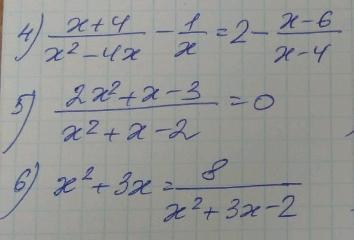 4) (x+4)/(x²-4x) - 1/x = 2 - (x-6)/(x-4)
5) (2x²+x-3)/(x²+x-2) = 0
6) x²+3x = 8/(x²+3x-2)